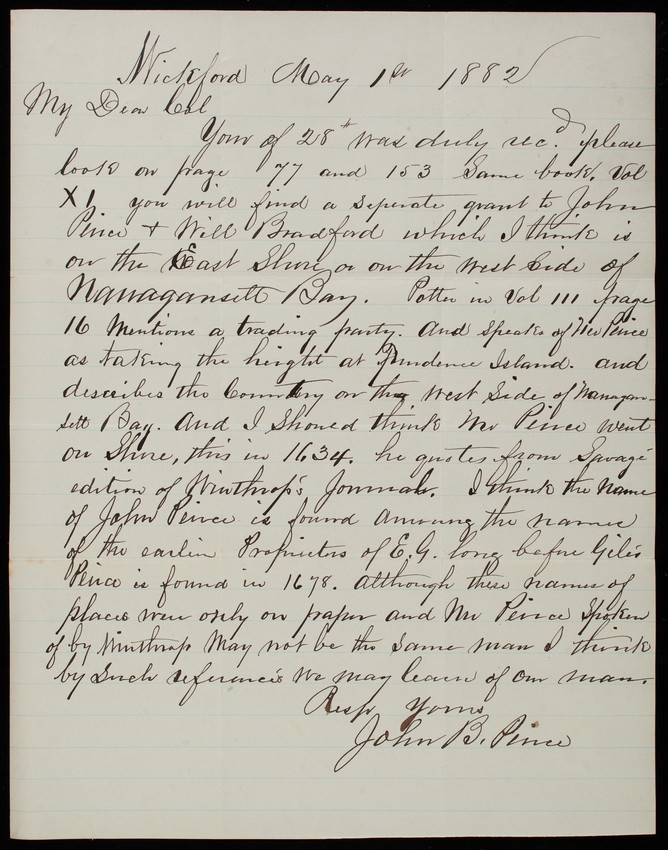 Wickford May 1st 1882
My Dear Col
Your of 28th was duly recd. please
look on page 77 and 153 Same book, Vol
X1 you will find a seperate grant to John
Peirce & Will Bradford which I think is
on the East Shore or on the west Side of
Narragansett Bay. Potter in Vol 111 page
16 mentions a trading party. And Speaks of Mr Peirce
as taking the height at Prudence Island. and
describes the Country on the west Side of Narragan-
sett Bay. And I Should think Mr Peirce went
on Shore, this in 1634. he quotes from Savage
edition of Winthrop's Journal. I think the Name
of John Peirce is found amoung the names
of the earlier Proprietors of E.G. long before Giles
Peirce is found in 1678. Although these names of
places were only on paper and Mr Peirce Spoken
of by Winthrop May not be the Same man I think
by Such references we may learn of our man.
Resp Yours
John B. Peirce